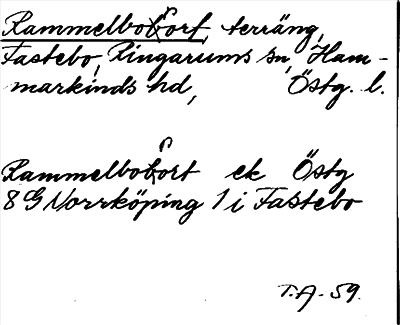 Rammelbofort, terräng,
Fastebo, Ringarums sn, Ham-
markinds hd, Östg. l.
Rammelbofort ek Östg
8 G Norrköping 1 i Fastebo
T.A. 59.